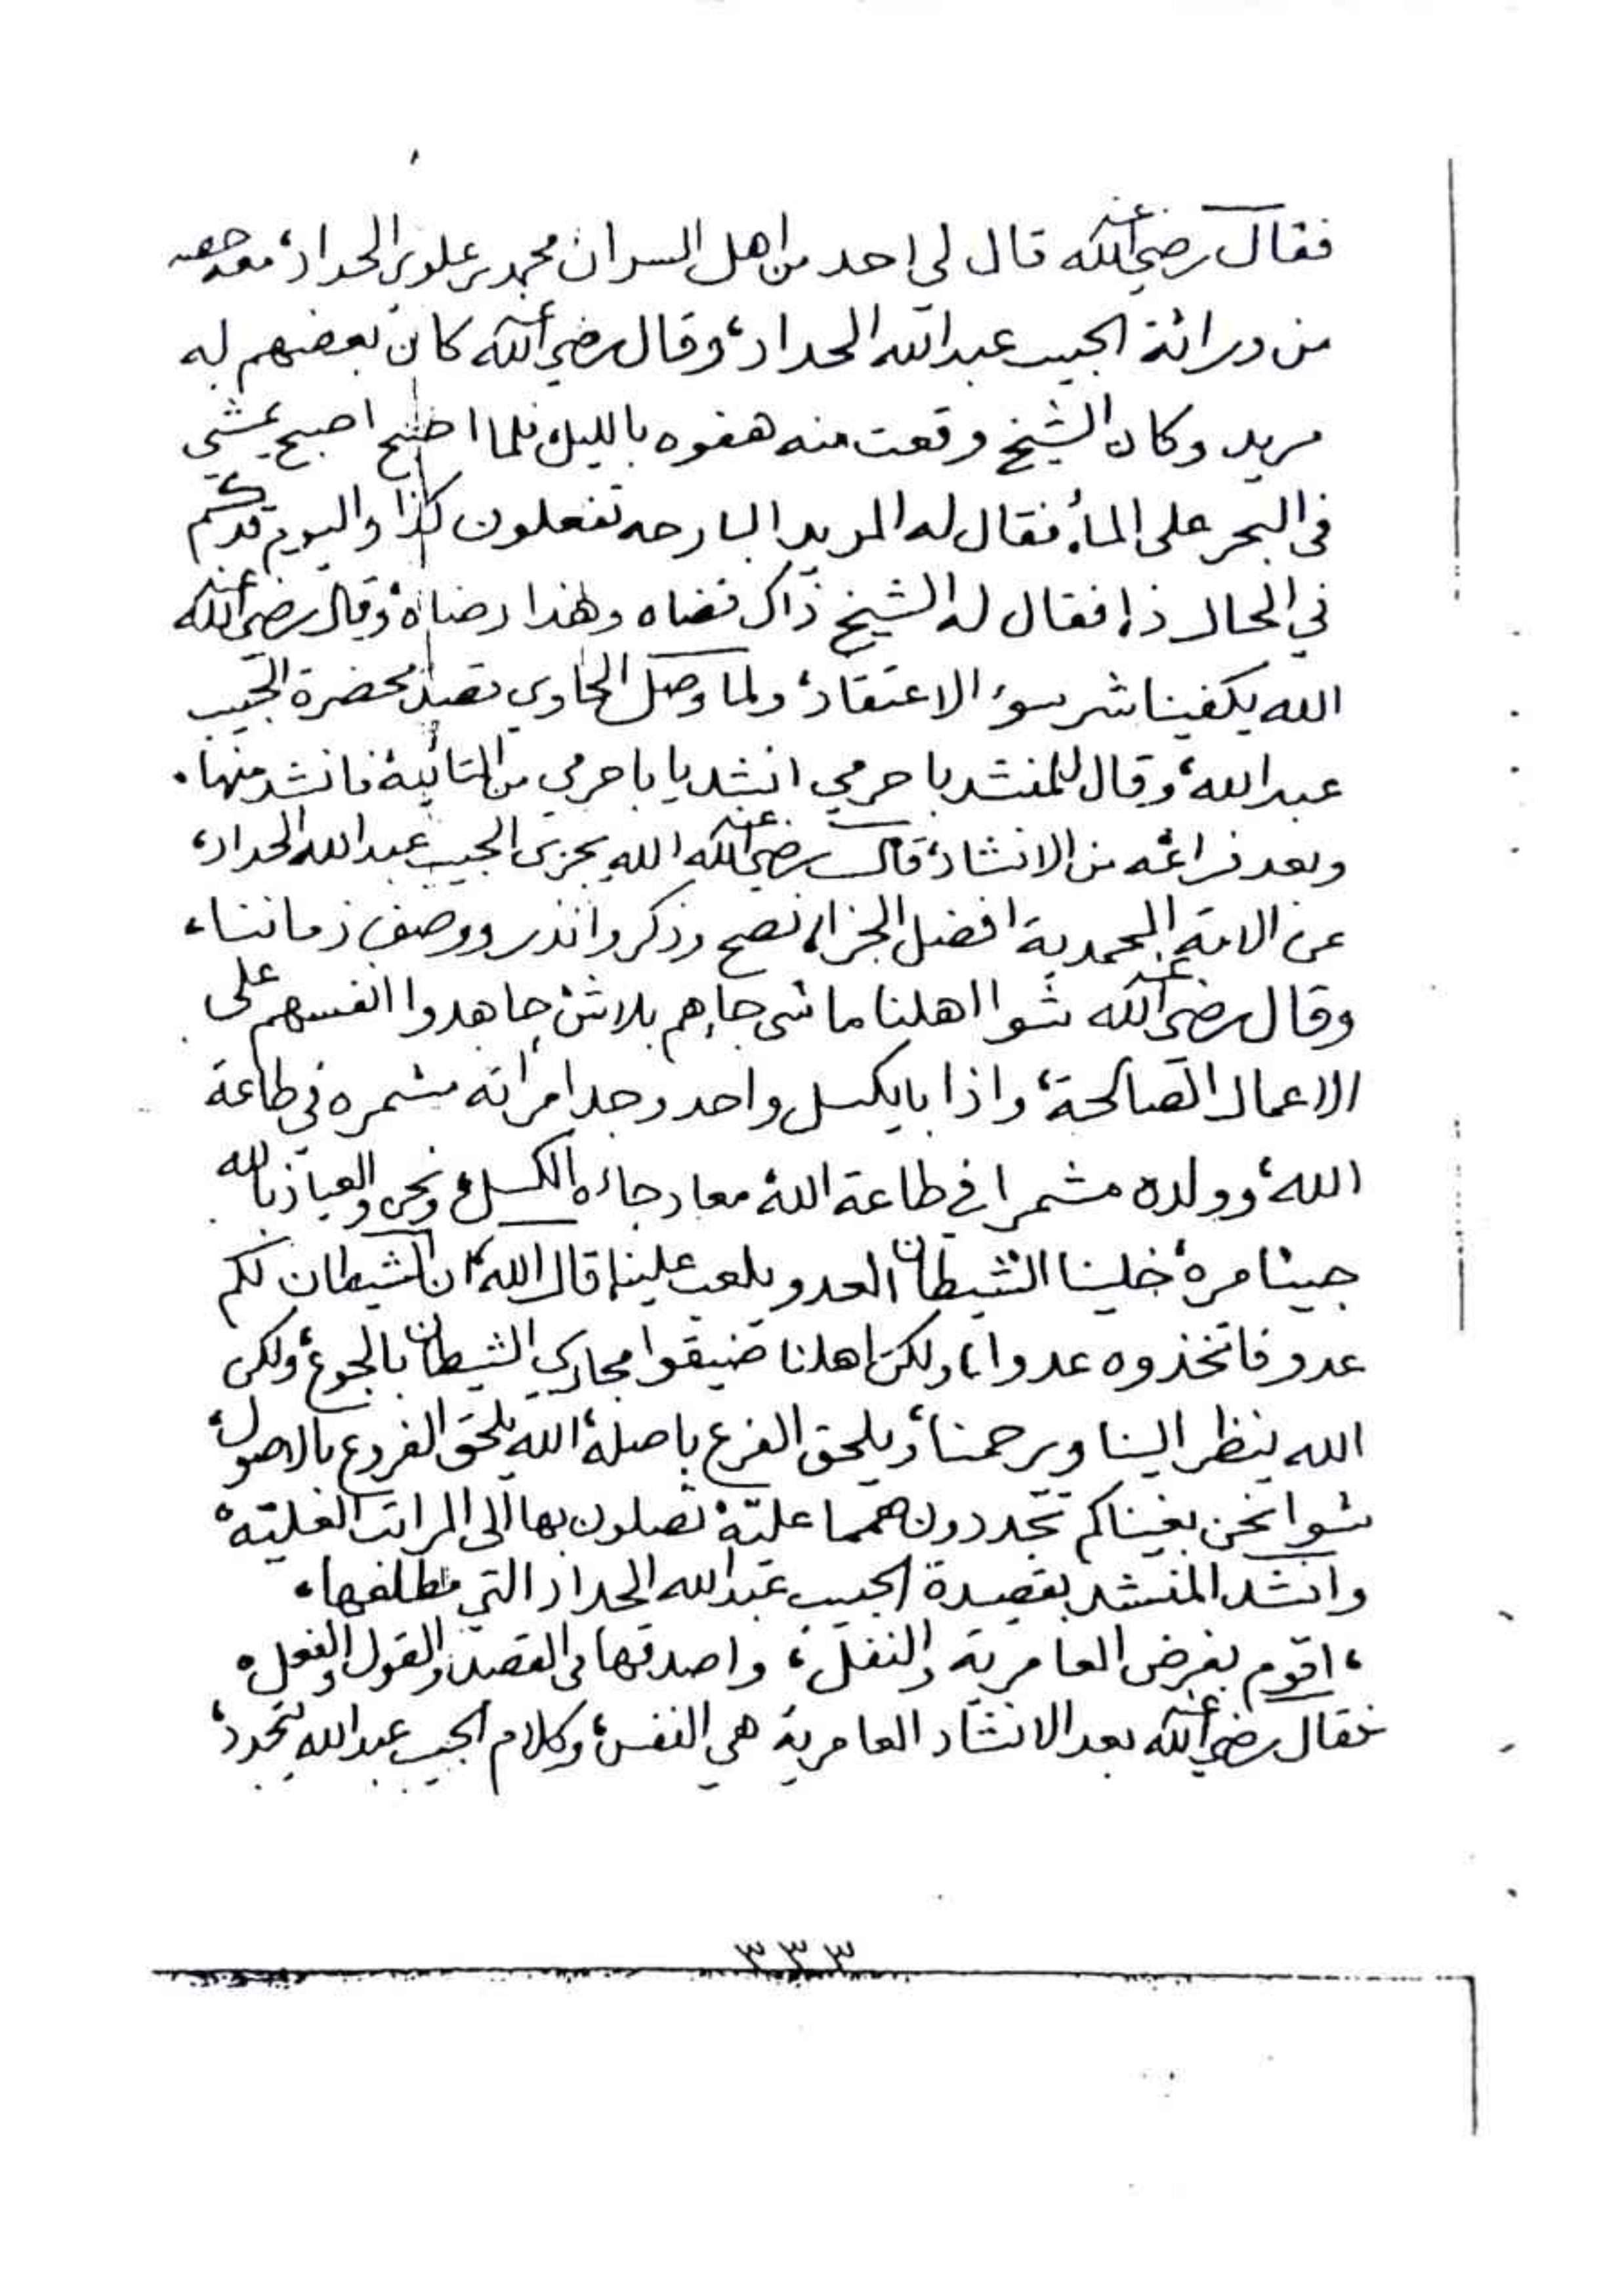 فقال رضي الله عنه قال لي احد من اهل السر ان محمد بن علوي الحداد، معه حصه
من وراثة الحبيب عبدالله الحداد، وقال رضي الله عنه كان بعضهم له
مريد وكان الشيخ وقعت منه هفوه بالليل فلما اصبح اصبح يمشي
في البحر على الماء، فقال له المريد البارحه تفعلون كذا واليوم قدكم
في الحال ذا فقال له الشيخ ذاك قضاه وهذا رضاه، وقال رضي الله عنه
الله يكفينا شر سوء الاعتقاد، ولما وصل الحاوي بحضرة الحبيب
عبدالله، وقال للمنشد باحرمي انشد يا باحرمي من التائية فانشد منها،
وبعد فراغه من الانشاد، قال رضي الله عنه الله يجزي الحبيب عبدالله الحداد،
عن الامة المحمدية افضل الجزاء نصح وذكر وانذر ووصف زماننا،
وقال رضي الله عنه شوا اهلنا ما شي جاهم بلاش، جاهدوا انفسهم على
الاعمال الصالحة، واذا بايكسل واحد وجد امرأته مشمره في طاعة
الله، وولده مشمرا في طاعة الله، معاد جاءه الكسل، ونحن والعياذ بالله
جينا مره، خلينا الشيطان العدو يلعب علينا، قال الله، ان الشيطان لكم
عدو فاتخذوه عدوا، ولكن اهلنا ضيقوا مجاري الشيطان بالجوع، ولكن
الله ينظر الينا ويرحمنا، ويلحق الفرع باصله، الله يلحق الفروع بالاصول،
شوا نحن بغيناكم تجددون همما عليّة، تصلون بها الى المراتب العليّة،
وانشد المنشد بقصيدة الحبيب عبدالله الحداد التي مطلعها،
، اقوم بفرض العامرية والنفل، واصدقها في القصد والقول والفعل،
فقال رضي الله عنه بعد الانشاد العامرية هي النفس، وكلام الحبيب عبدالله يجدد،
٣٣٣